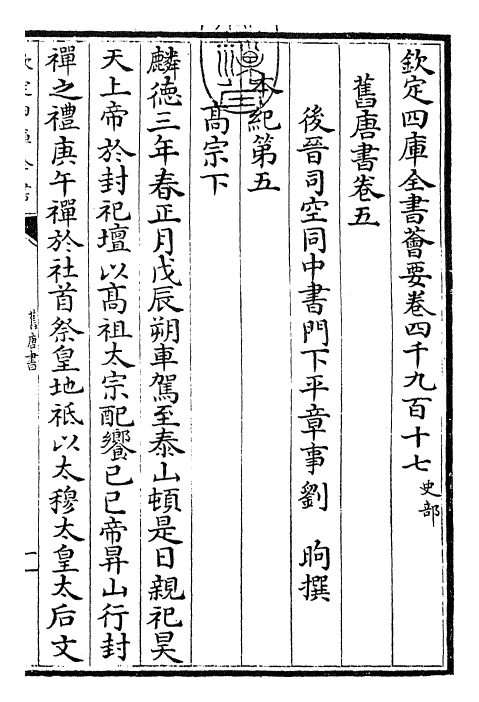 欽定四庫全書薈要卷四千九百十七 史部
舊唐書卷五
後晉司空同中書門下平章事劉 昫撰
本紀第五
高宗下
麟德三年春正月戊辰朔車駕至泰山頓是日親祀昊
天上帝於封祀壇以高祖太宗配饗己巳帝昇山行封
禪之禮庚午禪於社首祭皇地祇以太穆太皇太后文
舊唐書
一